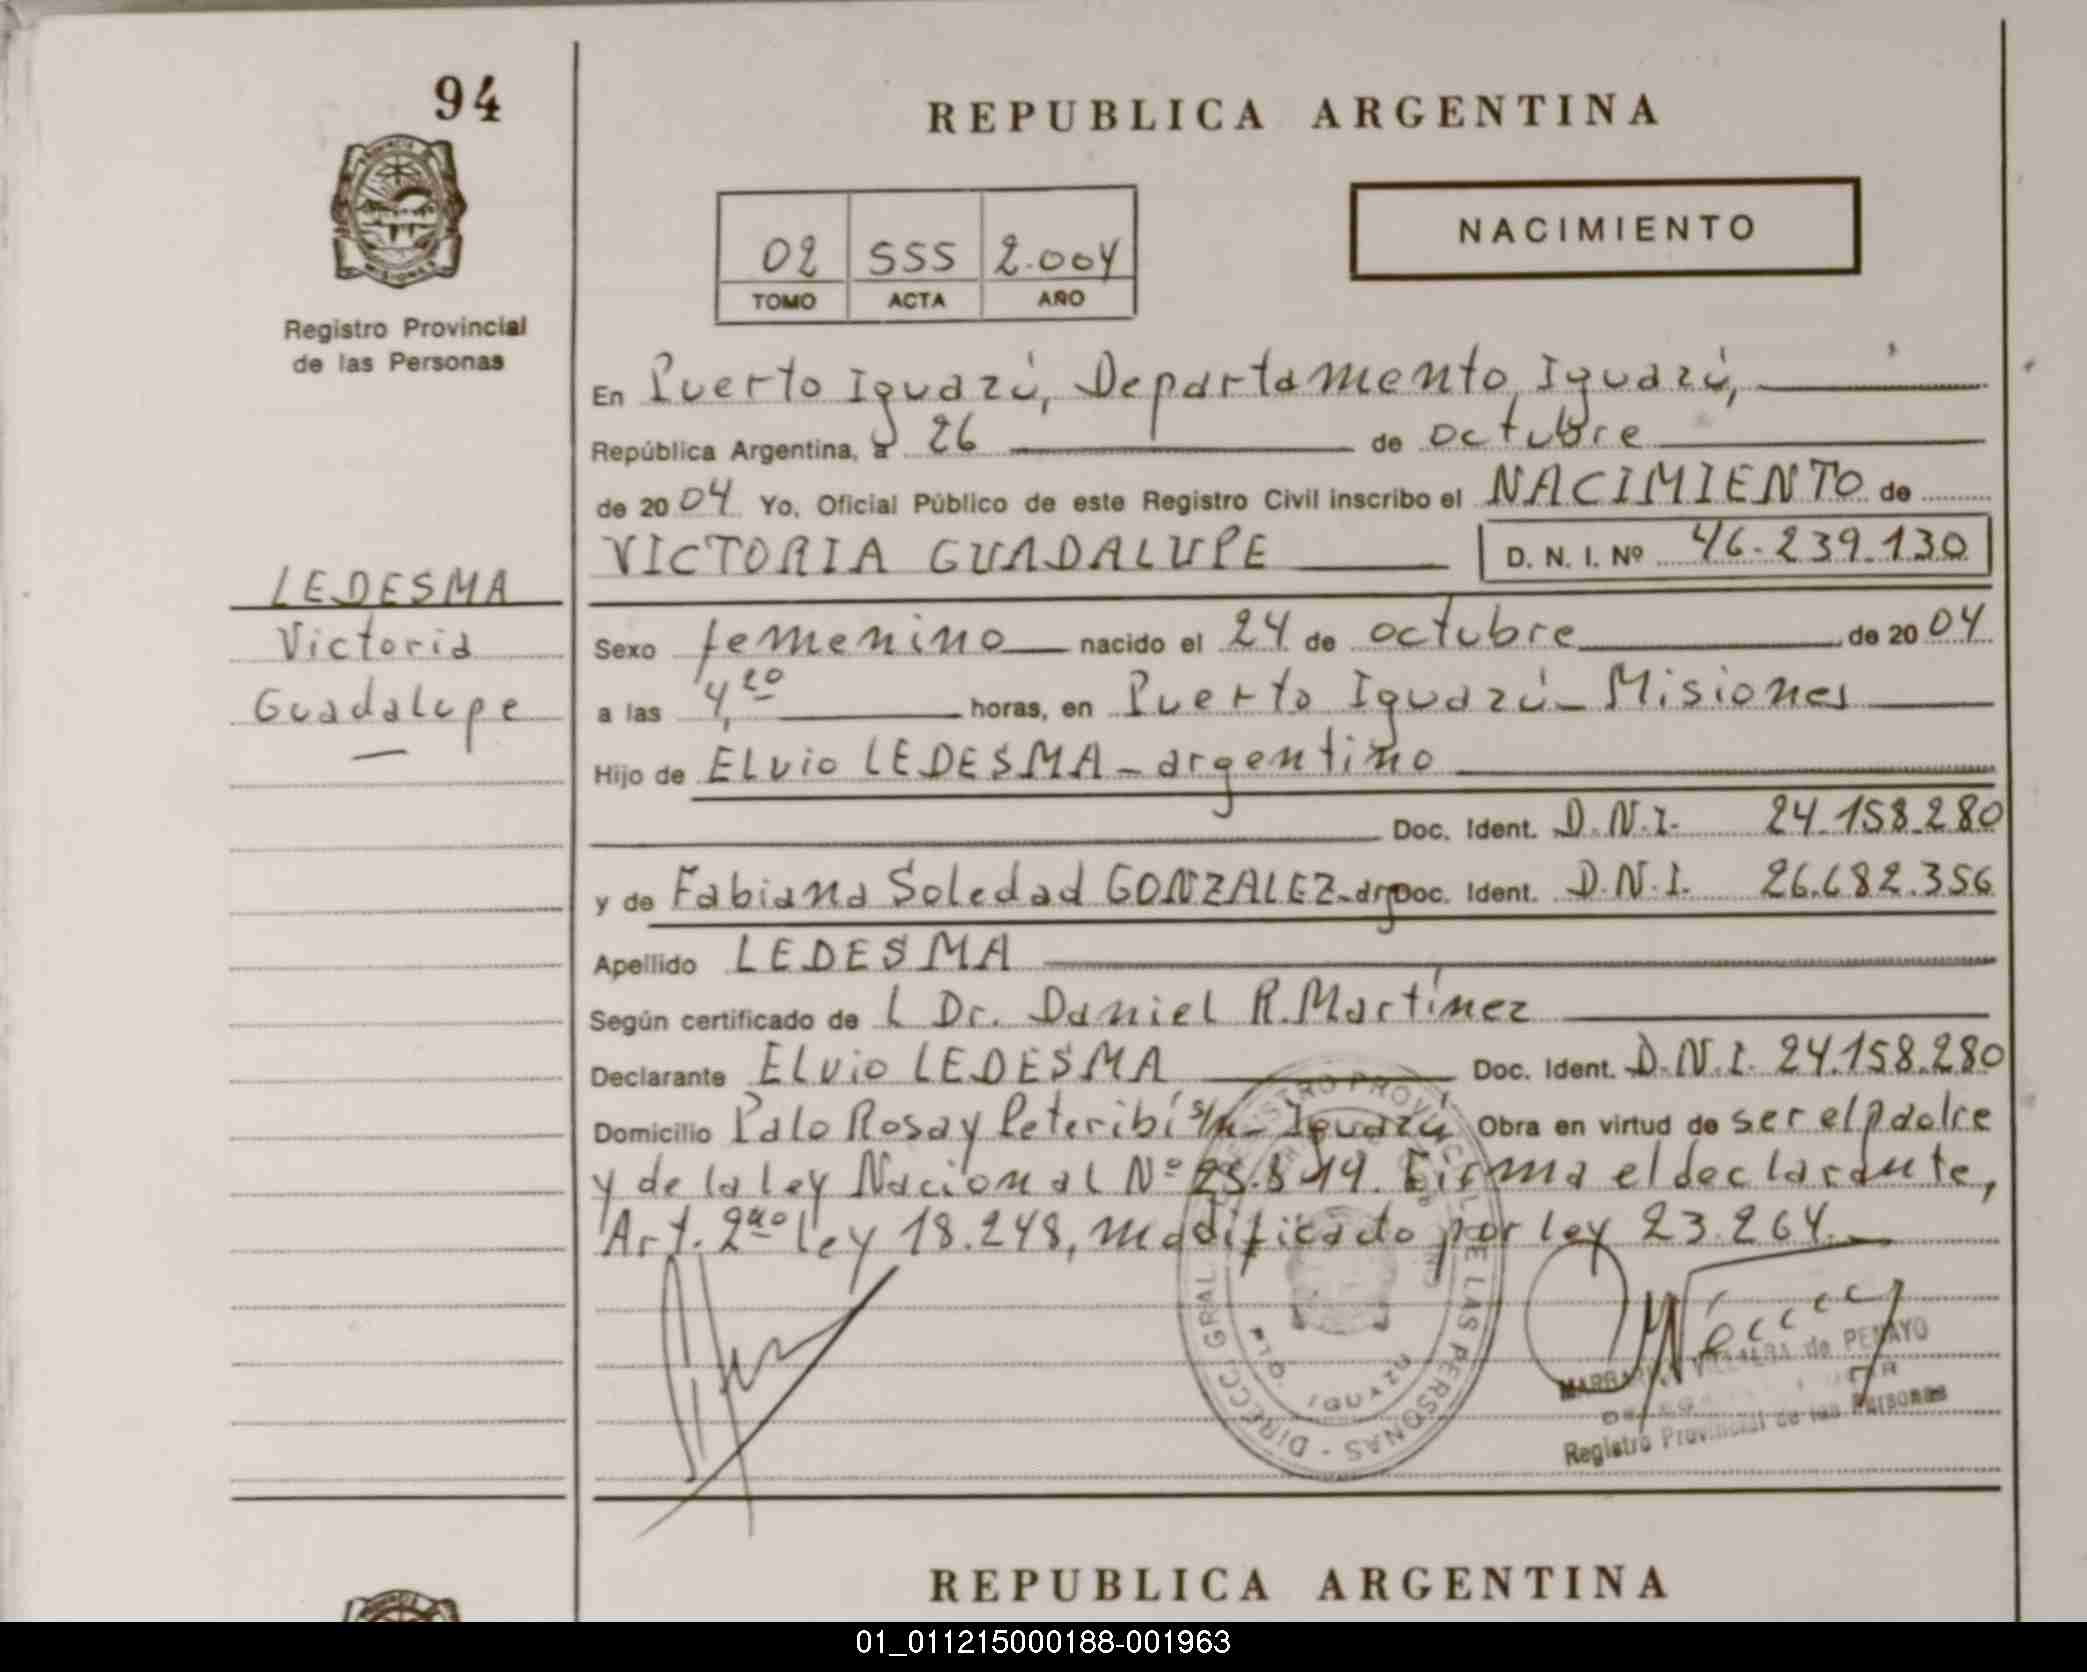 94
REPUBLICA ARGENTINA
PROVINCIA
MISIONES
NACIMIENTO
02 555 2.004
TOMO ACTA AÑO
Registro Provincial
de las Personas
En Puerto Iguazú, Departamento Iguazú,
República Argentina, a 26 de octubre
de 2004 Yo, Oficial Público de este Registro Civil inscribo el NACIMIENTO de
VICTORIA GUADALUPE D. N. I. Nº 46.239.130
LEDESMA
Victoria
Guadalupe
Sexo femenino nacido el 24 de octubre de 2004
a las 4,20 horas, en Puerto Iguazú - Misiones
Hijo de Elvio LEDESMA - argentino
Doc. Ident. D.N.I. 24.158.280
y de Fabiana Soledad GONZALEZ - arg Doc. Ident. D.N.I. 26.682.356
Apellido LEDESMA
Según certificado de l Dr. Daniel R. Martínez
Declarante Elvio LEDESMA Doc. Ident. D.N.I. 24.158.280
Domicilio Palo Rosa y Peteribí s/n - Iguazú Obra en virtud de ser el padre
y de la ley Nacional Nº 25.819. Firma el declarante,
Art. 2do ley 18.248, modificado por ley 23.264.
DIRECC. GRAL. REGISTRO PROVINCIAL DE LAS PERSONAS
IGUAZU
de PENAYO
Registro Provincial de las Personas
REPUBLICA ARGENTINA
01_011215000188-001963